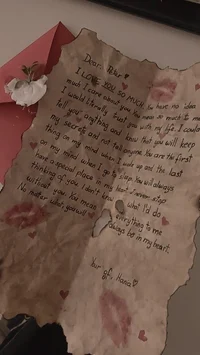 Dear, Peter ♡
I LOVE YOU SO MUCH. You have no idea
much I care about you. You mean so much to me
I would literally trust you with my life. I could
tell you anything and know that you will keep
my secrets and not tell anyone. You are the first
thing on my mind when I wake up and the last
on my mind when I go to sleep. You will always
have a special place in my heart. I never stop
thinking of you. I don't know what I'd do
without you. You mean everything to me
No matter what, you will always be in my heart.
Your gf, Hana ♡